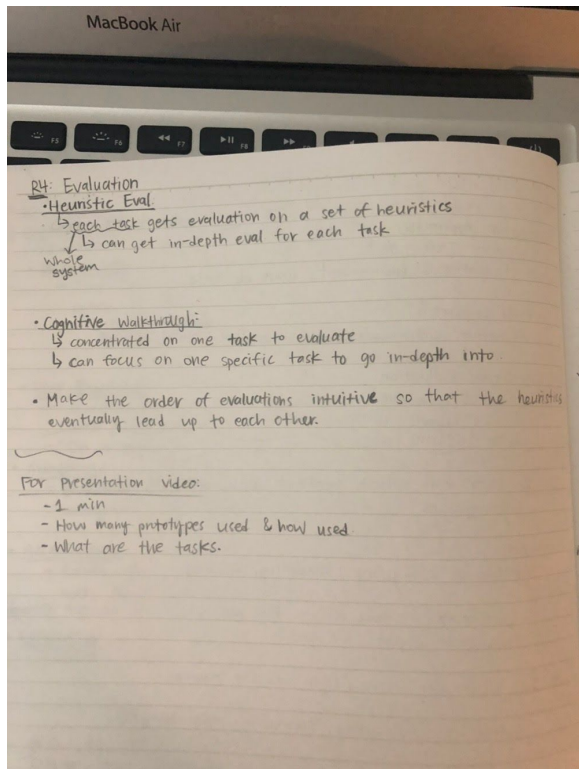 MacBook Air
F5
F6
F7
F8
R4: Evaluation
• Heuristic Eval.
↳ each task gets evaluation on a set of heuristics
↳ can get in-depth eval for each task
whole
system
• Cognitive Walkthrough:
↳ concentrated on one task to evaluate
↳ can focus on one specific task to go in-depth into
• Make the order of evaluations intuitive so that the heuristics
eventually lead up to each other.
For Presentation video:
- 1 min
- How many prototypes used & how used
- What are the tasks.